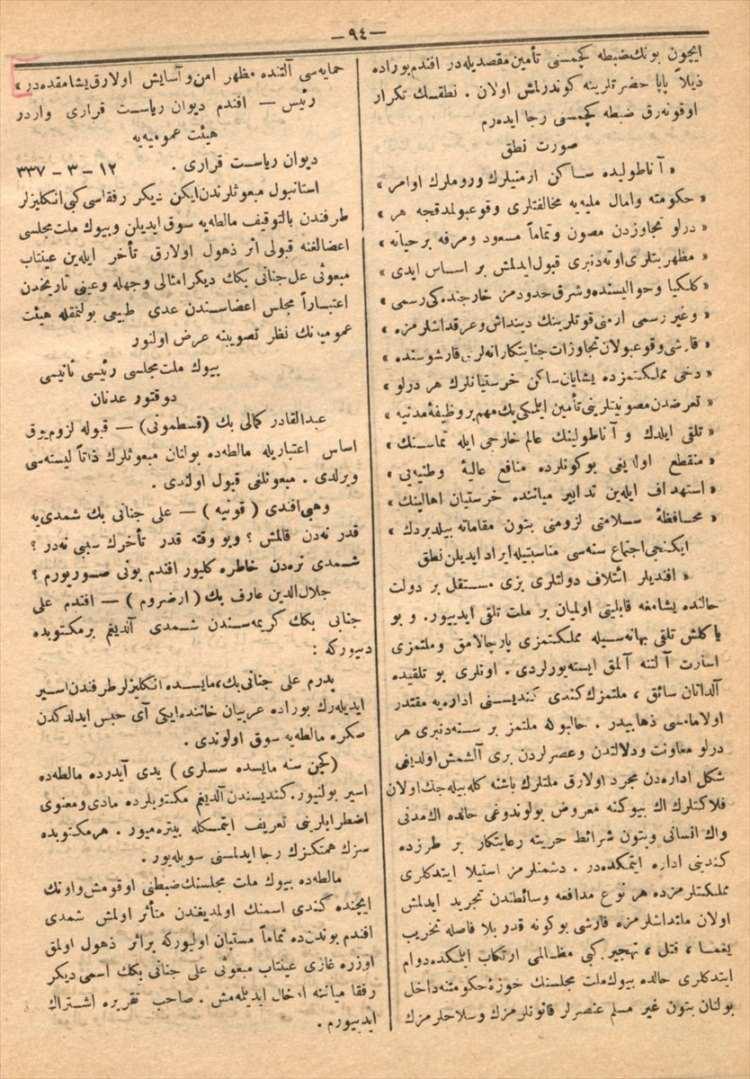 — ٩٤ —
ايچون بونك ضبطه كچمسنى تأمين مقصديله در افندم بوراده
ذيلاً پاپا حضرتلرينه كوندرلمش اولان . نطقسك تكرار
اوقونه‌رق ضبطه كچمسنى رجا ايده‌رم
صورت نطق
« آناطوليده ساكن ارمنيلرك وروملرك اوامر »
« حكومته وامال مليه يه مخالفتلرى وقوعبولمدقجه هر »
« درلو تجاوزدن مصون وتماماً مسعود ومرفه بر حيانه »
« مظهريتلرى اوته‌دنبرى قبول ايدلمش بر اساس ايدى »
« كلكيا وحواليسنده وشرق حدودمز خارجنده كى رسمى »
« وغير رسمى ارمنى قوتلرينك ديندىاش وعرقداشلرمزه »
« قارشى وقوعبولان تجاوزات جنايتكارانه‌لرى قارشوسنده »
« دخى مملكتمزده يشايان ساكن خرستيانلرك هر درلو »
« تعرضدن مصونيتلرينى تأمين ايتمكى پك مهم بر وظيفهٔ مدنيه »
« تلقى ايلدك و آناطولينك عالم خارجى ايله تماسنك »
« منقطع اولديغى بوكونلرده منافع عاليهٔ وطنيه‌يى »
« استهداف ايله‌ين تدابير مياننده خرستيان اهالينك »
« محافظهٔ سلامتى لزومنى بتون مقاماته بيلديردك »
ايكنجى اجتماع سنه‌سى مناسبتيله ايراد ايديلن نطق
« افنديلر ائتلاف دولتلرى بزى مستقل بر دولت
حالنده يشامغه قابليتى اوليان بر ملت تلقى ايدييور. و بو
ياكلش تلقى بهانه‌سيله مملكتمزى پارچالامق وملتمزى
اسارت آلتنه آلمق ايسته‌يورلردى. اونلرى بو تلقيده
آلدانان سائق ، ملتمزك كندى كنديسنى اداره‌يه مقتدر
اولامامسى ذهابيدر . حالبوكه ملتمز بر سنه‌دنبرى هر
درلو معاونت ودلالتدن وعصرلردن برى آلشمش اولديغى
شكل اداره‌دن مجرد اولارق ملتلرك باشنه كله‌بيله‌جك اولان
فلاكتلرك اك بيوكنه معروض بولوندوغى حالده اك مدنى
واك انسانى وبتون شرائط حريته رعايتكار بر طرزده
كندينى اداره ايتمكده‌در . دشمنلرمز استيلا ايتدكلرى
مملكتلرمزده هر نوع مدافعه وسائطندن تجريد ايدلمش
اولان ملتداشلرمزه قارشى بوكونه قدر بلا فاصله تخريب
يغما ، قتل ، تهجير كبى مظالمى ارتكاب ايلمكده دوام
ايتدكلرى حالده بيوك ملت مجلسنك حوزهٔ حكومتنه داخل
بولنان بتون غير مسلم عنصرلر قانونلرمزك وسلاحلرمزك
حمايه‌سى آلتنده مظهر امن و آسايش اولارق يشامقده‌در »
رئيس — افندم ديوان رياست قرارى واردر
هيئت عموميه‌يه
ديوان رياست قرارى . ١٢ — ٣ — ٣٣٧
استانبول مبعوثلرندن ايكن ديكر رفقاسى كبى انكليزلر
طرفندن بالتوقيف مالطه‌يه سوق ايديلن وبيوك ملت مجلسى
اعضالغنه قبولى اثر ذهول اولارق تأخر ايله‌ين عينتاب
مبعوثى على جنانى بكك ديكر امثالى وجهله وعينى تاريخدن
اعتباراً مجلس اعضاسندن عدى طبيعى بولنمقله هيئت
عموميه‌نك نظر تصويبنه عرض اولنور
بيوك ملت مجلسى رئيس ثانيسى
دوقتور عدنان
عبدالقادر كمالى بك (قسطمونى) — قبوله لزوم يوق
اساس اعتباريله مالطه‌ده بولنان مبعوثلرك ذاتاً ليسته‌سى
ويرلدى . مبعوثلغى قبول اولندى .
وهبى افندى ( قونيه ) — على جنانى بك شمدى‌يه
قدر نه‌دن قالمش ؟ وبو وقته قدر تأخرك سببى نه‌در ؟
شمدى نره‌دن خاطره كليور افندم بونى صورييورم ؟
جلال‌الدين عارف بك ( ارضروم ) — افندم على
جنانى بكك كريمه‌سندن شمدى آلديغم بر مكتوبده
دييوركه :
پدرم على جنانى بك ، مايسده انكليزلر طرفندن اسير
ايديله‌رك بوراده عربيان خاننده ايكى آى حبس ايدلدكدن
صكره مالطه‌يه سوق اولوندى .
( كچن سنه مايسده سسلرى ) يدى آيدر ده مالطه‌ده
اسير بولنيور. كنديسندن آلديغم مكتوبلرده مادى ومعنوى
اضطرابلرينى تعريف ايتمكله بيتره‌ميور . هر مكتوبده
سزك همتكزك رجا ايدلمسنى سويله‌يور .
مالطه‌ده بيوك ملت مجلسنك ضبطنى اوقومش واونك
ايچنده كندى اسمنك اولمديغندن متأثر اولمش شمدى
افندم بوندن ده تماماً مستبان اوليوركه بر اثر ذهول اولمق
اوزره غازى عينتاب مبعوثى على جنانى بكك اسمى ديكر
رفقا مياننه ادخال ايديله‌مش . صاحب تقريره اشتراك
ايدييورم .